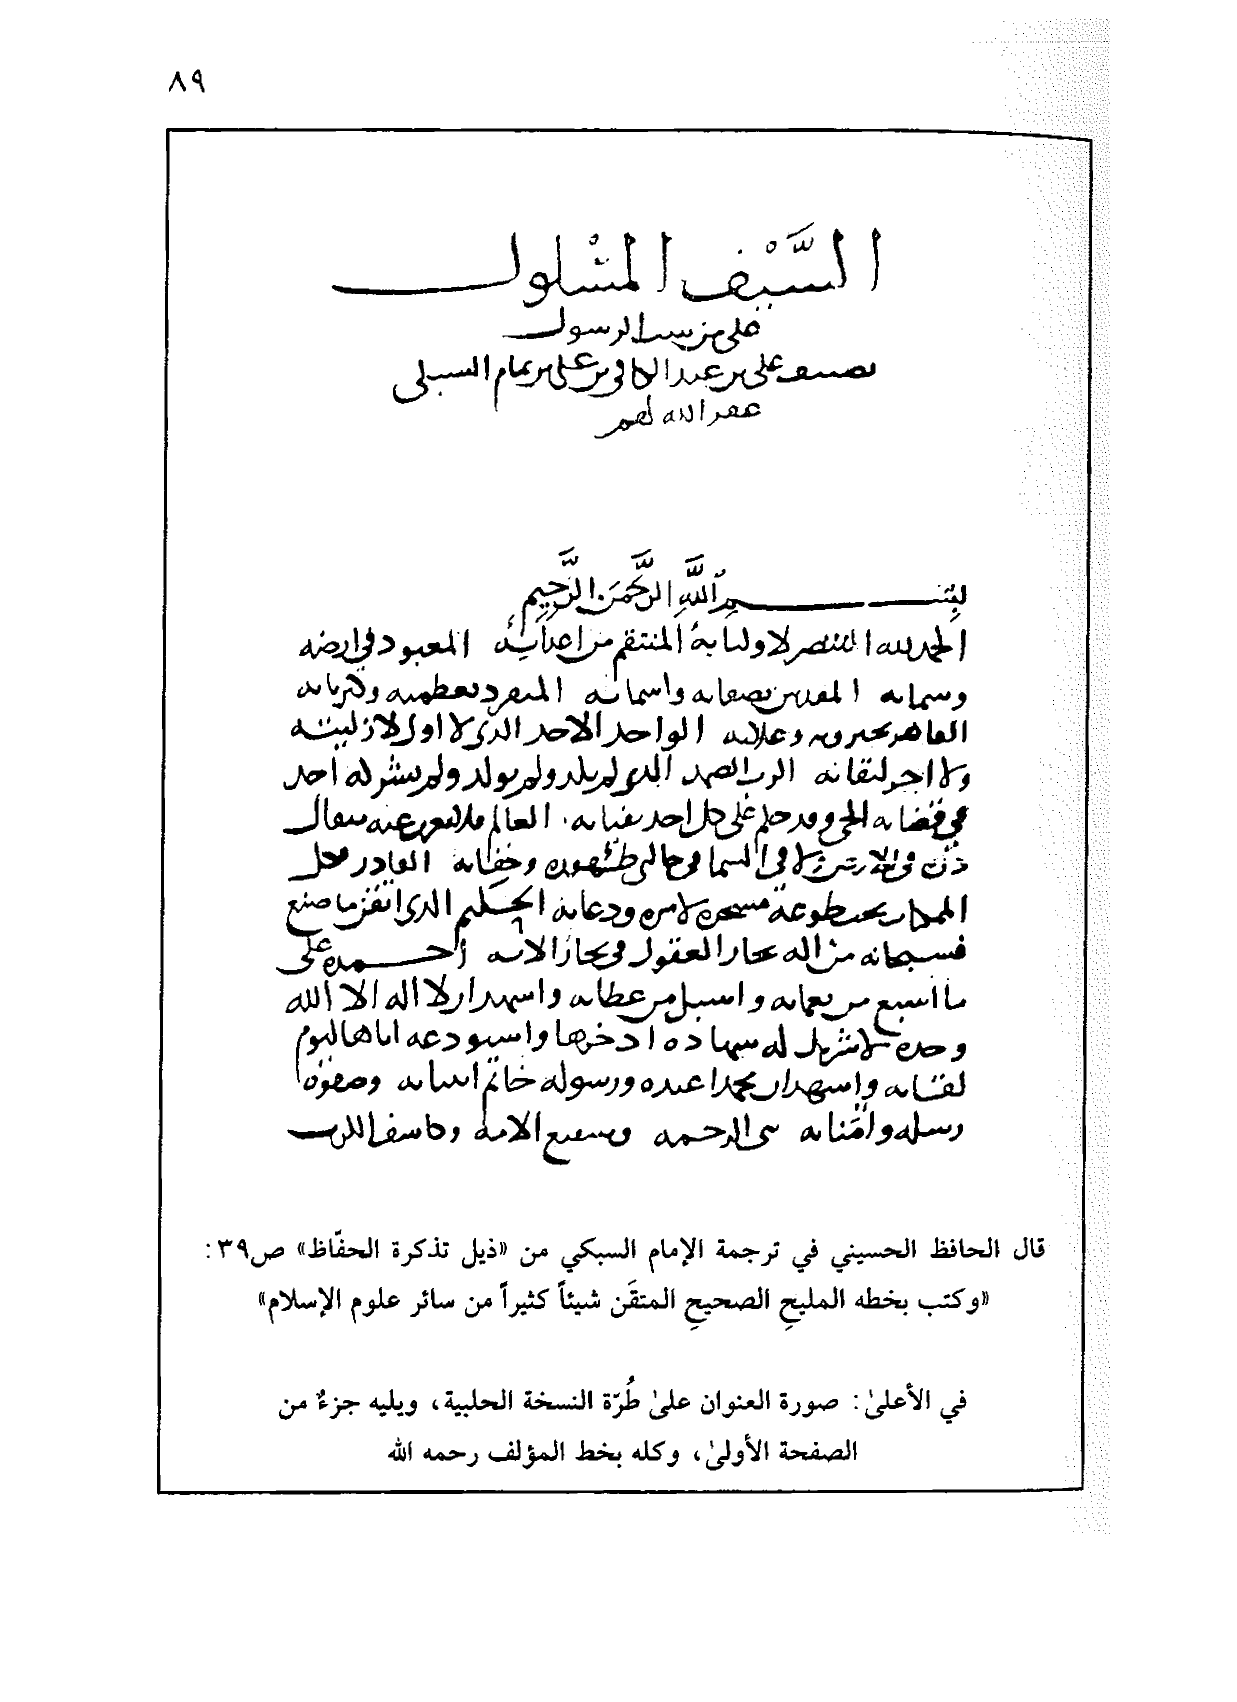 ٨٩
السَّيْف المسْلول
على من سب الرسول
تصنيف على بن عبد الكافي بن على بن تمام السبكي
غفر الله لهم
بِسْم اللَّهِ الرَّحْمَنِ الرَّحِيمِ
الحمد لله المنتصر لاوليايه المنتقم من اعدايه المعبود في ارضه
وسمايه المقدس بصفاته واسمايه المتفرد بعظمته وكبريايه
القاهر بجبروته وعلايه الواحد الاحد الذي لا اول لازليته
ولا اخر لبقايه الرب الصمد الذي لم يلد ولم يولد ولم يشركه احد
في قضايه الحي وقد حكم على كل احد بفنايه العالم فلا يعزب عنه مثقال
ذرة في الارض ولا في السما في حالتي ظهوره وخفايه القادر فكل
الممكنات طوعه مسخرة لامره ودعايه الحكيم الذي اتقن ما صنع
فسبحانه من اله تحار العقول في بحار الايه أحمده على
ما اسبغ من نعمايه واسبل من عطايه واشهد ان لا اله الا الله
وحده لا شريك له شهادة ادخرها واستودعه اياها ليوم
لقايه واشهد ان محمدا عبده ورسوله خاتم انبيايه وصفوة
رسله وأمنايه نبي الرحمه وشفيع الامه وكاشف الكرب
قال الحافظ الحسيني في ترجمة الإمام السبكي من «ذيل تذكرة الحفّاظ» ص٣٩:
«وكتب بخطه المليحِ الصحيحِ المتقَن شيئاً كثيراً من سائر علوم الإسلام»
في الأعلىٰ: صورة العنوان علىٰ طُرّة النسخة الحلبية، ويليه جزءٌ من
الصفحة الأولىٰ، وكله بخط المؤلف رحمه الله